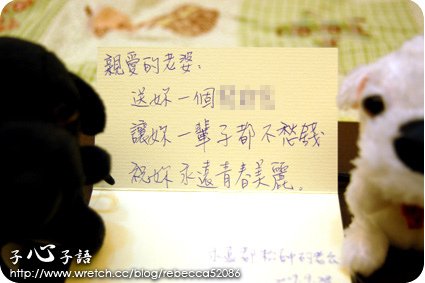 親愛的老婆:
送妳一個
讓妳一輩子都不愁錢
祝妳永遠青春美麗。
永遠都
子心子語
http://www.wretch.cc/blog/rebecca52086